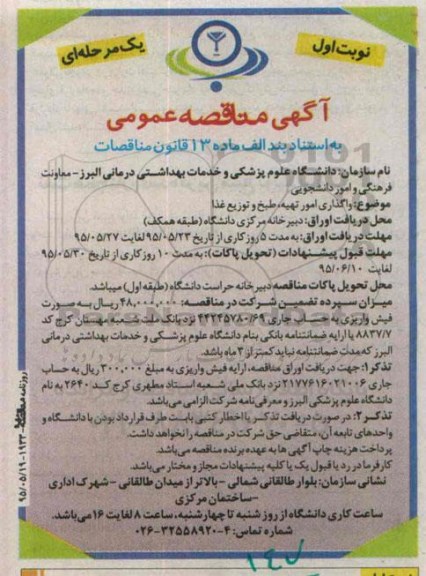 نوبت اول
یک مرحله‌ای
آگهی مناقصه عمومی
به استناد بند الف ماده ۱۳ قانون مناقصات
نام سازمان: دانشگاه علوم پزشکی و خدمات بهداشتی درمانی البرز- معاونت
فرهنگی و امور دانشجویی
موضوع: واگذاری امور تهیه، طبخ و توزیع غذا
محل دریافت اوراق: دبیرخانه مرکزی دانشگاه (طبقه همکف)
مهلت دریافت اوراق: به مدت ۵ روز کاری از تاریخ ۹۵/۰۵/۲۳ لغایت ۹۵/۰۵/۲۷
مهلت قبول پیشنهادات (تحویل پاکات): به مدت ۱۰ روز کاری از تاریخ ۹۵/۰۵/۳۰
لغایت ۹۵/۰۶/۱۰
محل تحویل پاکات مناقصه دبیرخانه حراست دانشگاه (طبقه اول) میباشد.
میزان سپرده تضمین شرکت در مناقصه: ۴۸,۰۰۰,۰۰۰ ریال به صورت
فیش واریزی به حساب جاری ۴۴۲۴۵۷۸۰/۶۹ نزد بانک ملت شعبه مهستان کرج کد
۸۸۳۷/۷ یا ارایه ضمانتنامه بانکی بنام دانشگاه علوم پزشکی و خدمات بهداشتی درمانی
البرز که مدت ضمانتنامه نباید کمتر از ۳ ماه باشد.
تذکر۱: جهت دریافت اوراق مناقصه، ارایه فیش واریزی به مبلغ ۳۰۰,۰۰۰ ریال به حساب
جاری ۲۱۷۷۶۱۶۰۲۱۰۰۶ نزد بانک ملی شعبه استاد مطهری کرج کد ۲۶۴۰ به نام
دانشگاه علوم پزشکی البرز و معرفی نامه شرکت الزامی می‌باشد.
تذکر۲: در صورت دریافت تذکر یا اخطار کتبی بابت طرف قرارداد بودن با دانشگاه و
واحدهای تابعه آن، متقاضی حق شرکت در مناقصه را نخواهد داشت.
پرداخت هزینه چاپ آگهی ها به عهده برنده مناقصه می‌باشد.
کارفرما در رد یا قبول یک یا کلیه پیشنهادات مجاز و مختار می‌باشد.
نشانی سازمان: بلوار طالقانی شمالی - بالاتر از میدان طالقانی - شهرک اداری
-ساختمان مرکزی
ساعت کاری دانشگاه از روز شنبه تا چهارشنبه، ساعت ۸ لغایت ۱۶ می‌باشد.
شماره تماس: ۴-۳۲۵۵۸۹۲۰-۰۲۶
روزنامه مناقصه ۱۹۳۳-۹۵/۰۵/۱۹
۱۴۷